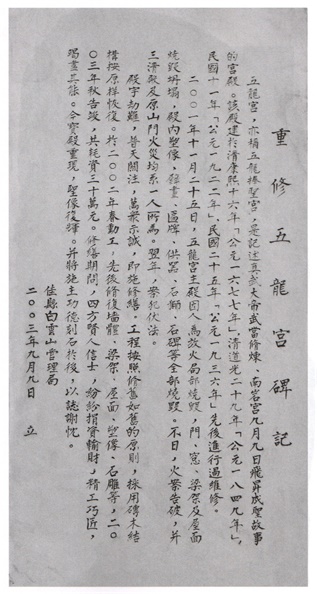 重修五龍宮碑記
五龍宮，亦稱五龍捧聖宮，是記述真武大帝武當修煉、南岩宮九月九日飛昇成聖故事
的宮殿。該殿建於清康熙十六年「公元一六七七年」，清道光二十九年「公元一八四九年」，
民國十一年「公元一九二二年」、民國二十五年「公元一九三六年」先後進行過維修。
二〇〇一年十一月二十五日，五龍宮主殿因人為故火局部燒毀，門、窓、梁架及屋面
燒毀坍塌，殿內塑像、壁畫、匾碑、供器、石獅、石碑等全部燒毀。不日，火案告破，并
三清殿及原山門火災均系一人所為。翌年，案犯伏法。
殿宇劫難，普天關注，萬衆示誠，即施修繕。工程按照修舊如舊的原則，採用磚木結
構按原樣恢復。於二〇〇二年春動工，先後修復墻體、梁架、屋面、塑像、石雕等，二〇
〇三年秋告竣，共耗資三十萬元。修繕期間，四方賢人信士，紛紛捐資輸財，精工巧匠，
竭盡其能。今寶殿重現，聖像復輝。并將施主功德刻石於後，以誌謝忱。
佳縣白雲山管理局
二〇〇三年九月九日　立